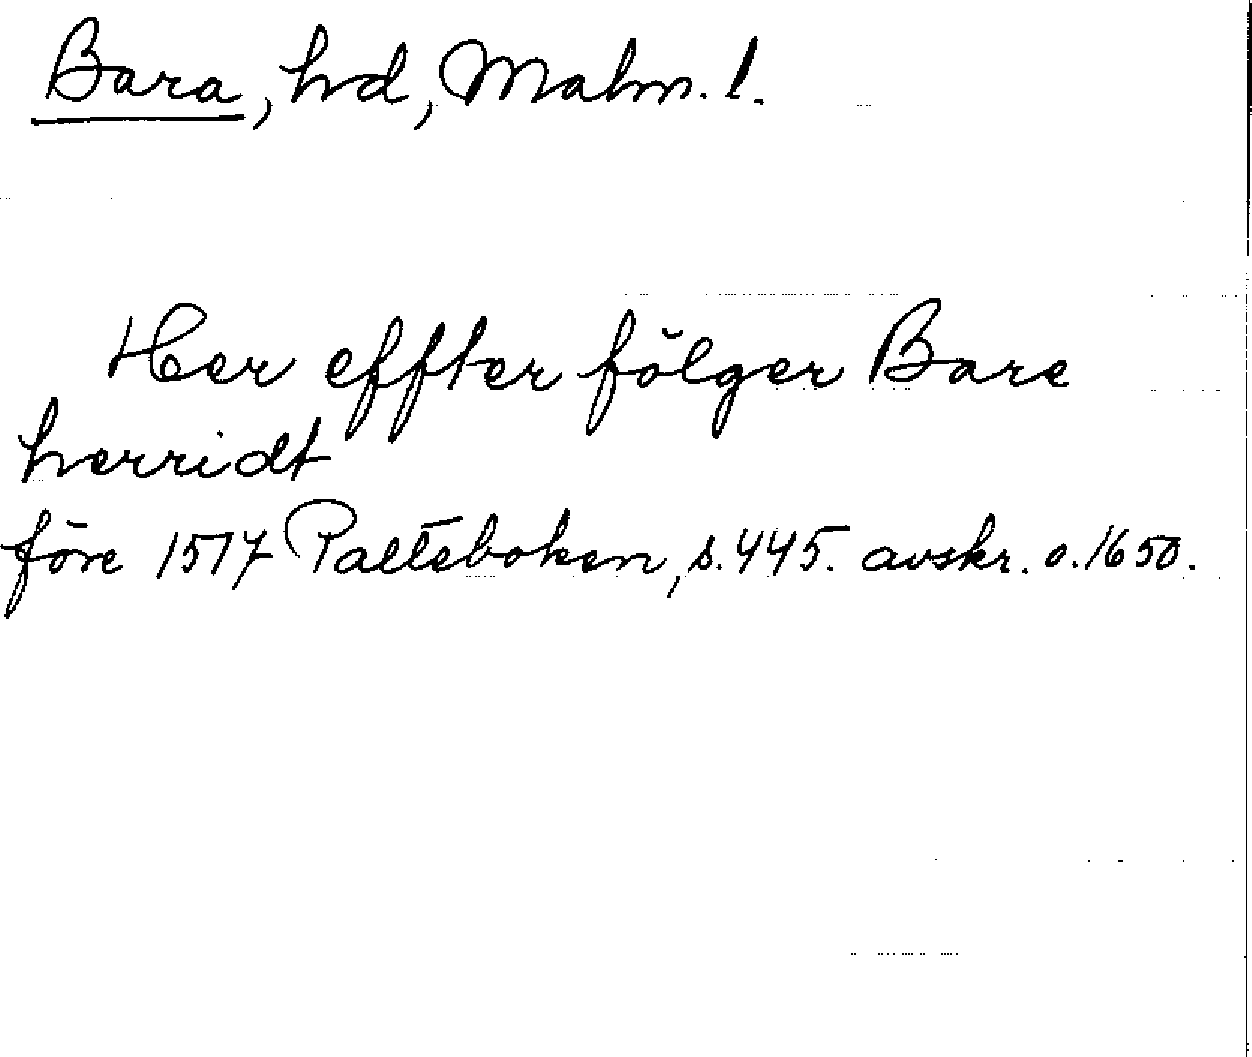 Bara, hd, Malm. l.
Her effter fölger Bare
herridt
före 1517 Palteboken, s. 445. avskr. o. 1650.